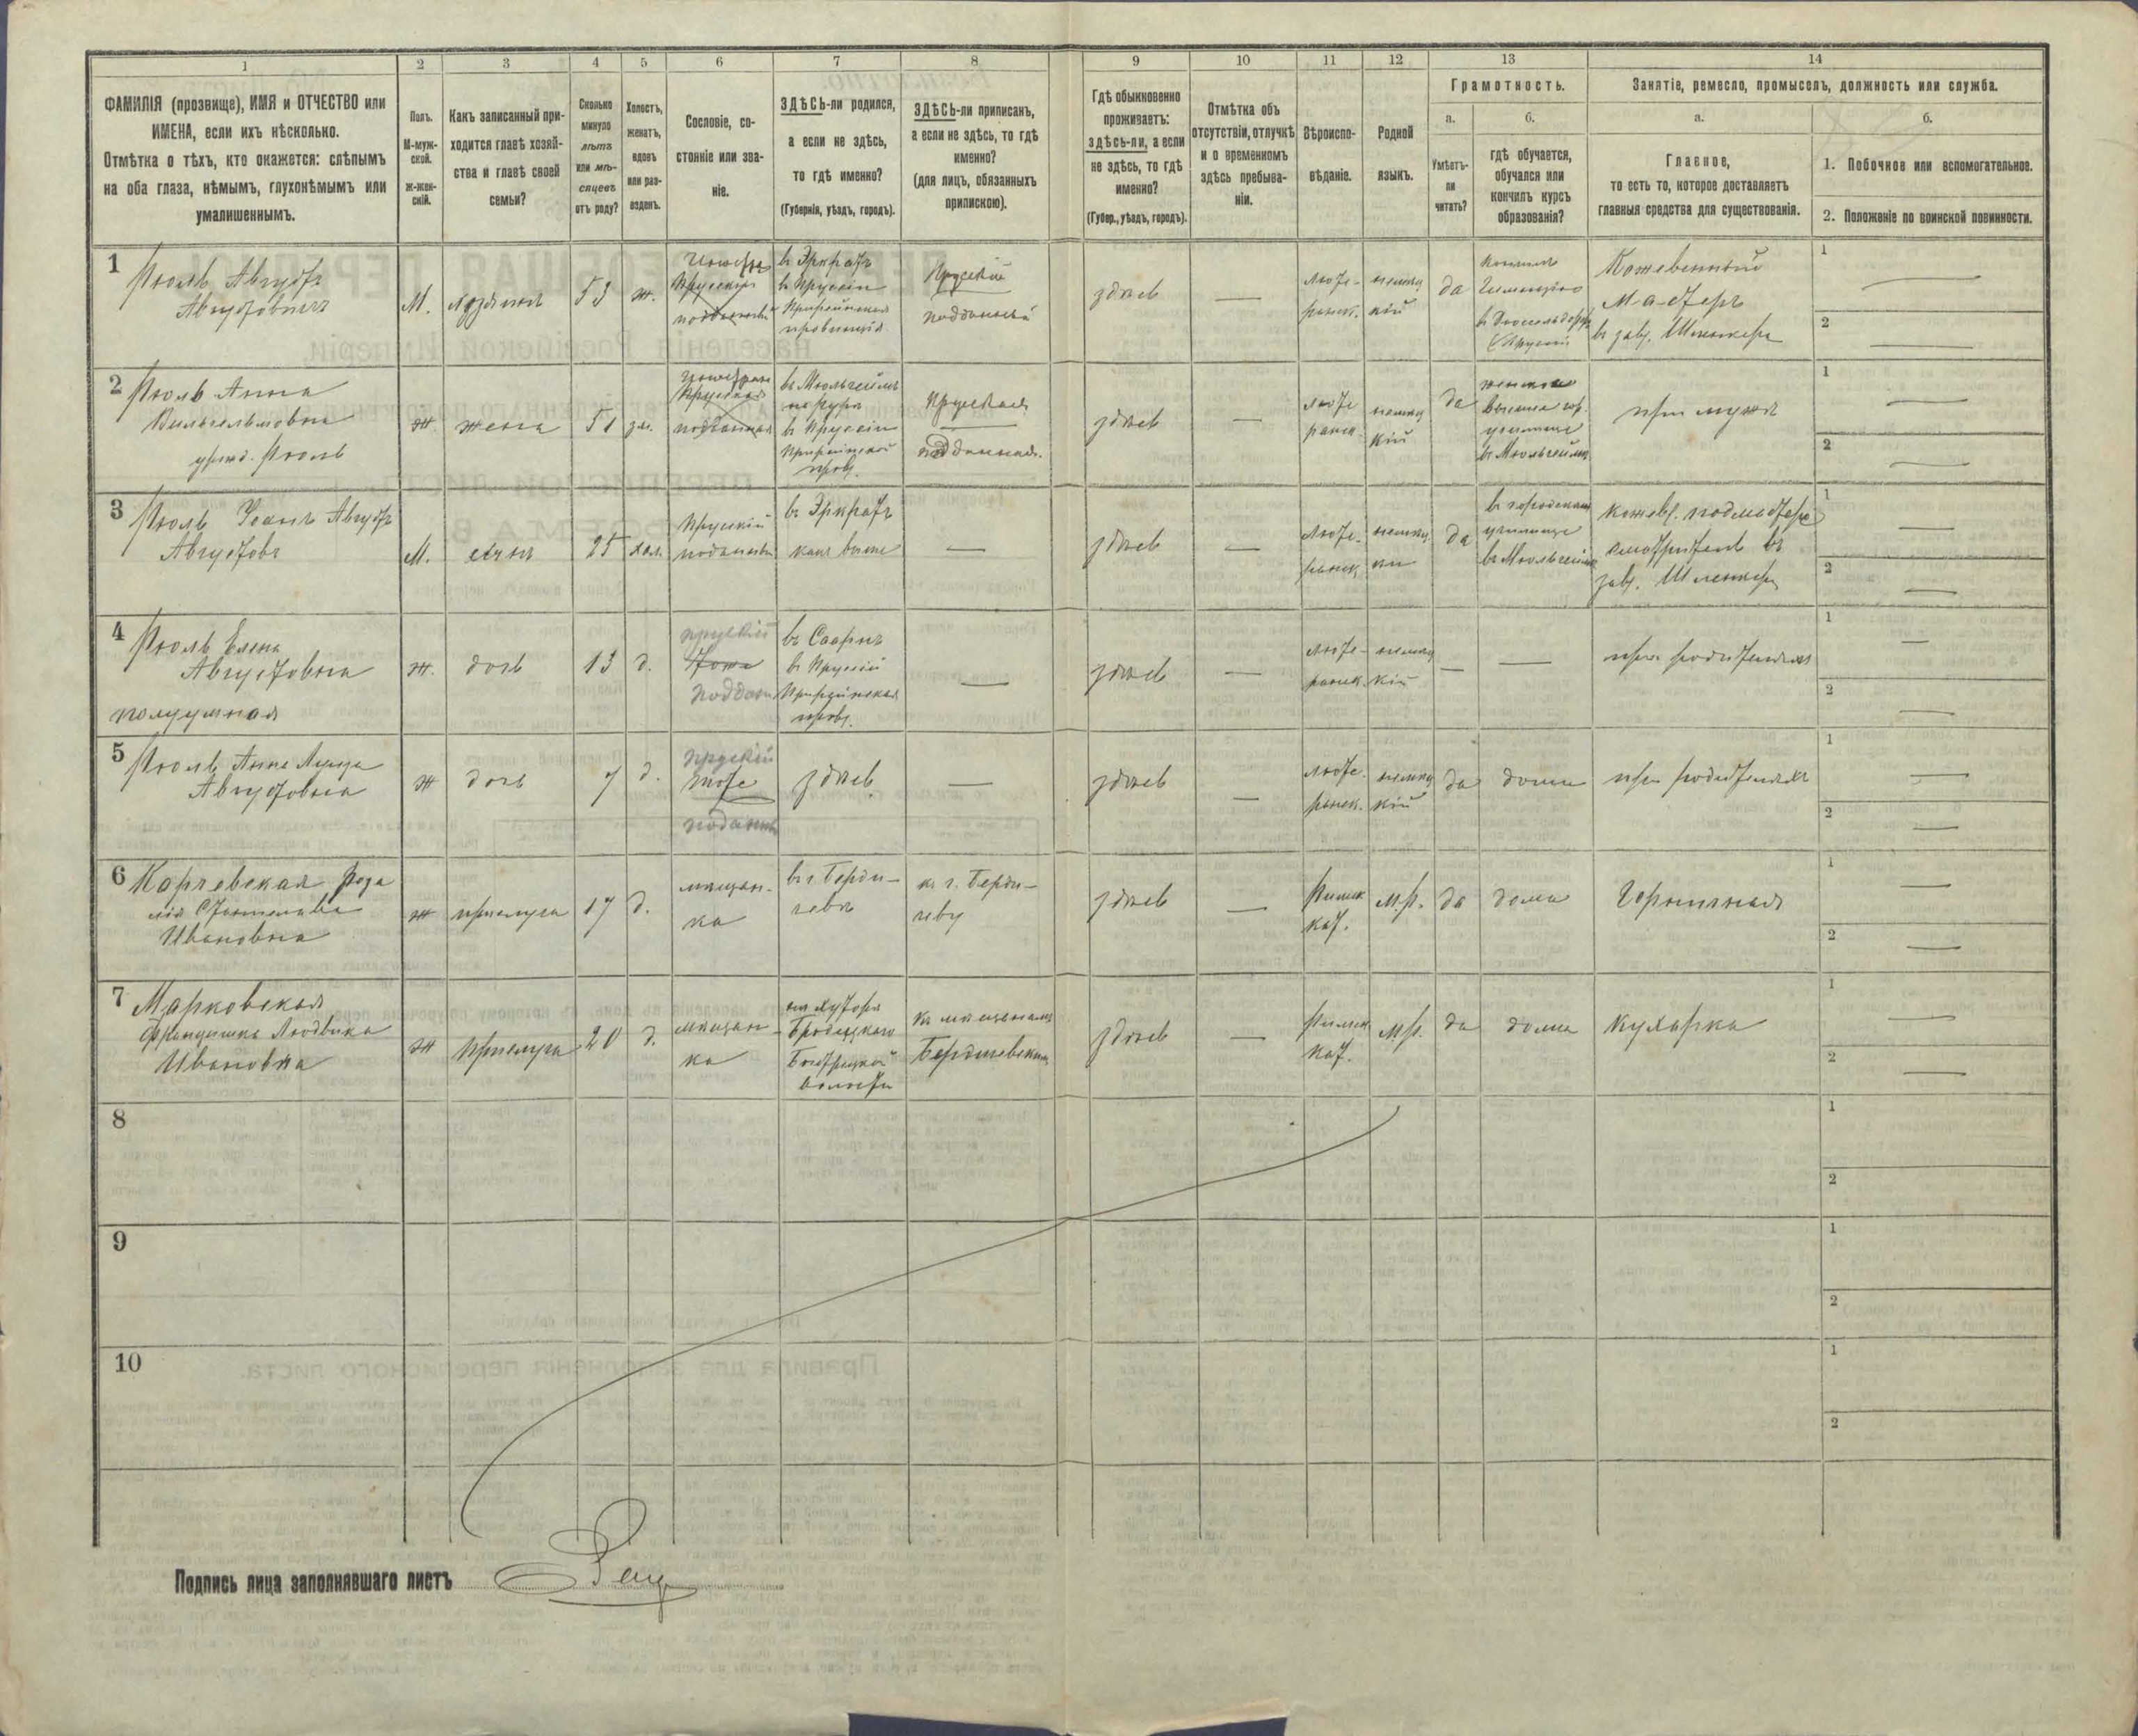 1
2
3
4
5
6
7
8
9
10
11
12
13
14
ФАМИЛІЯ (прозвище), ИМЯ и ОТЧЕСТВО или
ИМЕНА, если ихъ нѣсколько.
Отмѣтка о тѣхъ, кто окажется: слѣпымъ
на оба глаза, нѣмымъ, глухонѣмымъ или
умалишеннымъ.
Полъ.
М-муж-
ской.
Ж-жен-
скій.
Какъ записанный при-
ходится главѣ хозяй-
ства и главѣ своей
семьи?
Сколько
минуло
лѣтъ
или мѣ-
сяцевъ
отъ роду?
Холостъ,
женатъ,
вдовъ
или раз-
веденъ.
Сословіе, со-
стояніе или зва-
ніе.
ЗДѢСЬ-ли родился,
а если не здѣсь,
то гдѣ именно?
(Губернія, уѣздъ, городъ).
ЗДѢСЬ-ли приписанъ,
а если не здѣсь, то гдѣ
именно?
(для лицъ, обязанныхъ
припискою).
Гдѣ обыкновенно
проживаетъ:
здѣсь-ли, а если
не здѣсь, то гдѣ
именно?
(Губер., уѣздъ, городъ).
Отмѣтка объ
отсутствіи, отлучкѣ
и о временномъ
здѣсь пребыва-
ніи.
Вѣроиспо-
вѣданіе.
Родной
языкъ.
Грамотность.
а.
Умѣетъ-
ли
читать?
б.
гдѣ обучается,
обучался или
кончилъ курсъ
образованія?
Занятіе, ремесло, промыселъ, должность или служба.
а.
Главное,
то есть то, которое доставляетъ
главныя средства для существованія.
б.
1. Побочное или вспомогательное.
2. Положеніе по воинской повинности.
1
Августъ
Августовичъ
М.
хозяинъ
53
ж.
Прусскій
подданный
въ Эркратъ
въ Пруссіи
провинція
Прусскій
подданный
здѣсь
—
Люте-
ранск.
немец
кій
да
Гимназію
въ Дюссельдорфѣ
Кожевенный
Мастеръ
въ зав. Шленкера
1
—
2
—
2
Анна
Вильгельмовна
ж
жена
51
зм.
въ Мюльгеймѣ
на Рурѣ
въ Пруссіи
пров.
Прусская
подданная.
здѣсь
—
Люте
ранск.
немец
кій
да
училище
въ Мюльгеймѣ
при мужѣ
1
—
2
—
3
Августъ
Августовъ
М.
сынъ
25
хол.
Прусскій
подданный
въ Эркратъ
какъ выше
—
здѣсь
—
Люте-
ранск.
немец
кій
да
въ городскомъ
училище
въ Мюльгеймѣ
кожев. подмастерье
смотритель въ
зав. Шленкера
1
—
2
—
4
Елена
Августовна
полуумная
ж.
дочь
13
д.
прускій
тоже
поддан
въ Саарнѣ
въ Пруссіи
пров.
—
здѣсь
—
Люте-
ранск.
немец
кій
—
—
при родителяхъ
1
—
2
—
5
Анна Луиза
Августовна
ж
дочь
7
д.
прускій
тоже
поданный
здѣсь
—
здѣсь
—
Люте-
ранск.
немец
кій
да
дома
при родителяхъ
1
—
2
—
6
Карчевская Роза
лія
Ивановна
ж
прислуга
17
д.
мѣщан-
ка
въ г. Берди-
чевѣ
къ г. Берди-
чеву
здѣсь
—
Римск
кат.
М.р.
да
дома
Горничная
1
—
2
—
7
Марковская
Францишка Людвика
Ивановна
ж
прислуга
20
д.
мѣщан
ка
волости
къ мѣщанамъ
Бердичевскимъ
здѣсь
—
Римск
кат.
М.р.
да
дома
кухарка
1
—
2
—
8
1
2
9
1
2
10
1
2
Подпись лица заполнявшаго листъ